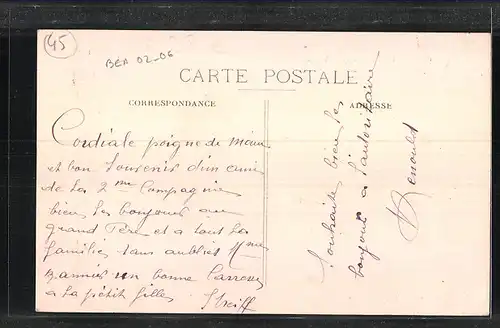 45
BEA 02-06
CARTE POSTALE
CORRESPONDANCE
ADRESSE
Cordiale poigne de main
et bon Souvenir d'un ami
de la 2me Compagnie
bien les bonjours au
grand Père et a tout les
familles sans oubliés Mme
un bonne
a la pétit filles
Souhaite bien les
bonjours a
Renould